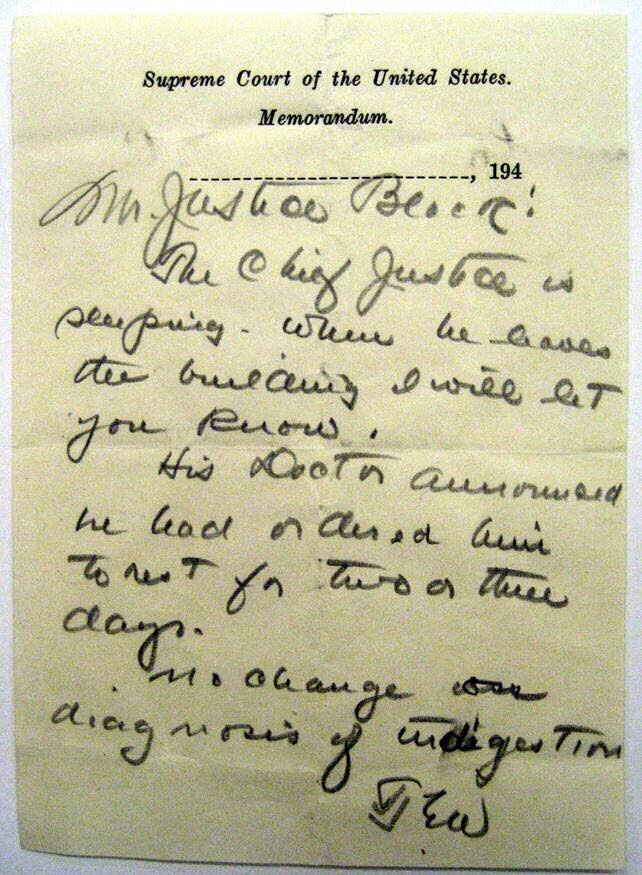 Supreme Court of the United States.
Memorandum.
---------------------------, 194
Mr. Justice Black:
The Chief Justice is
sleeping. When he leaves
the building I will let
you know.
His Doctor announced
he had ordered him
to rest for two or three
days.
No change
diagnosis of indigestion
TEW